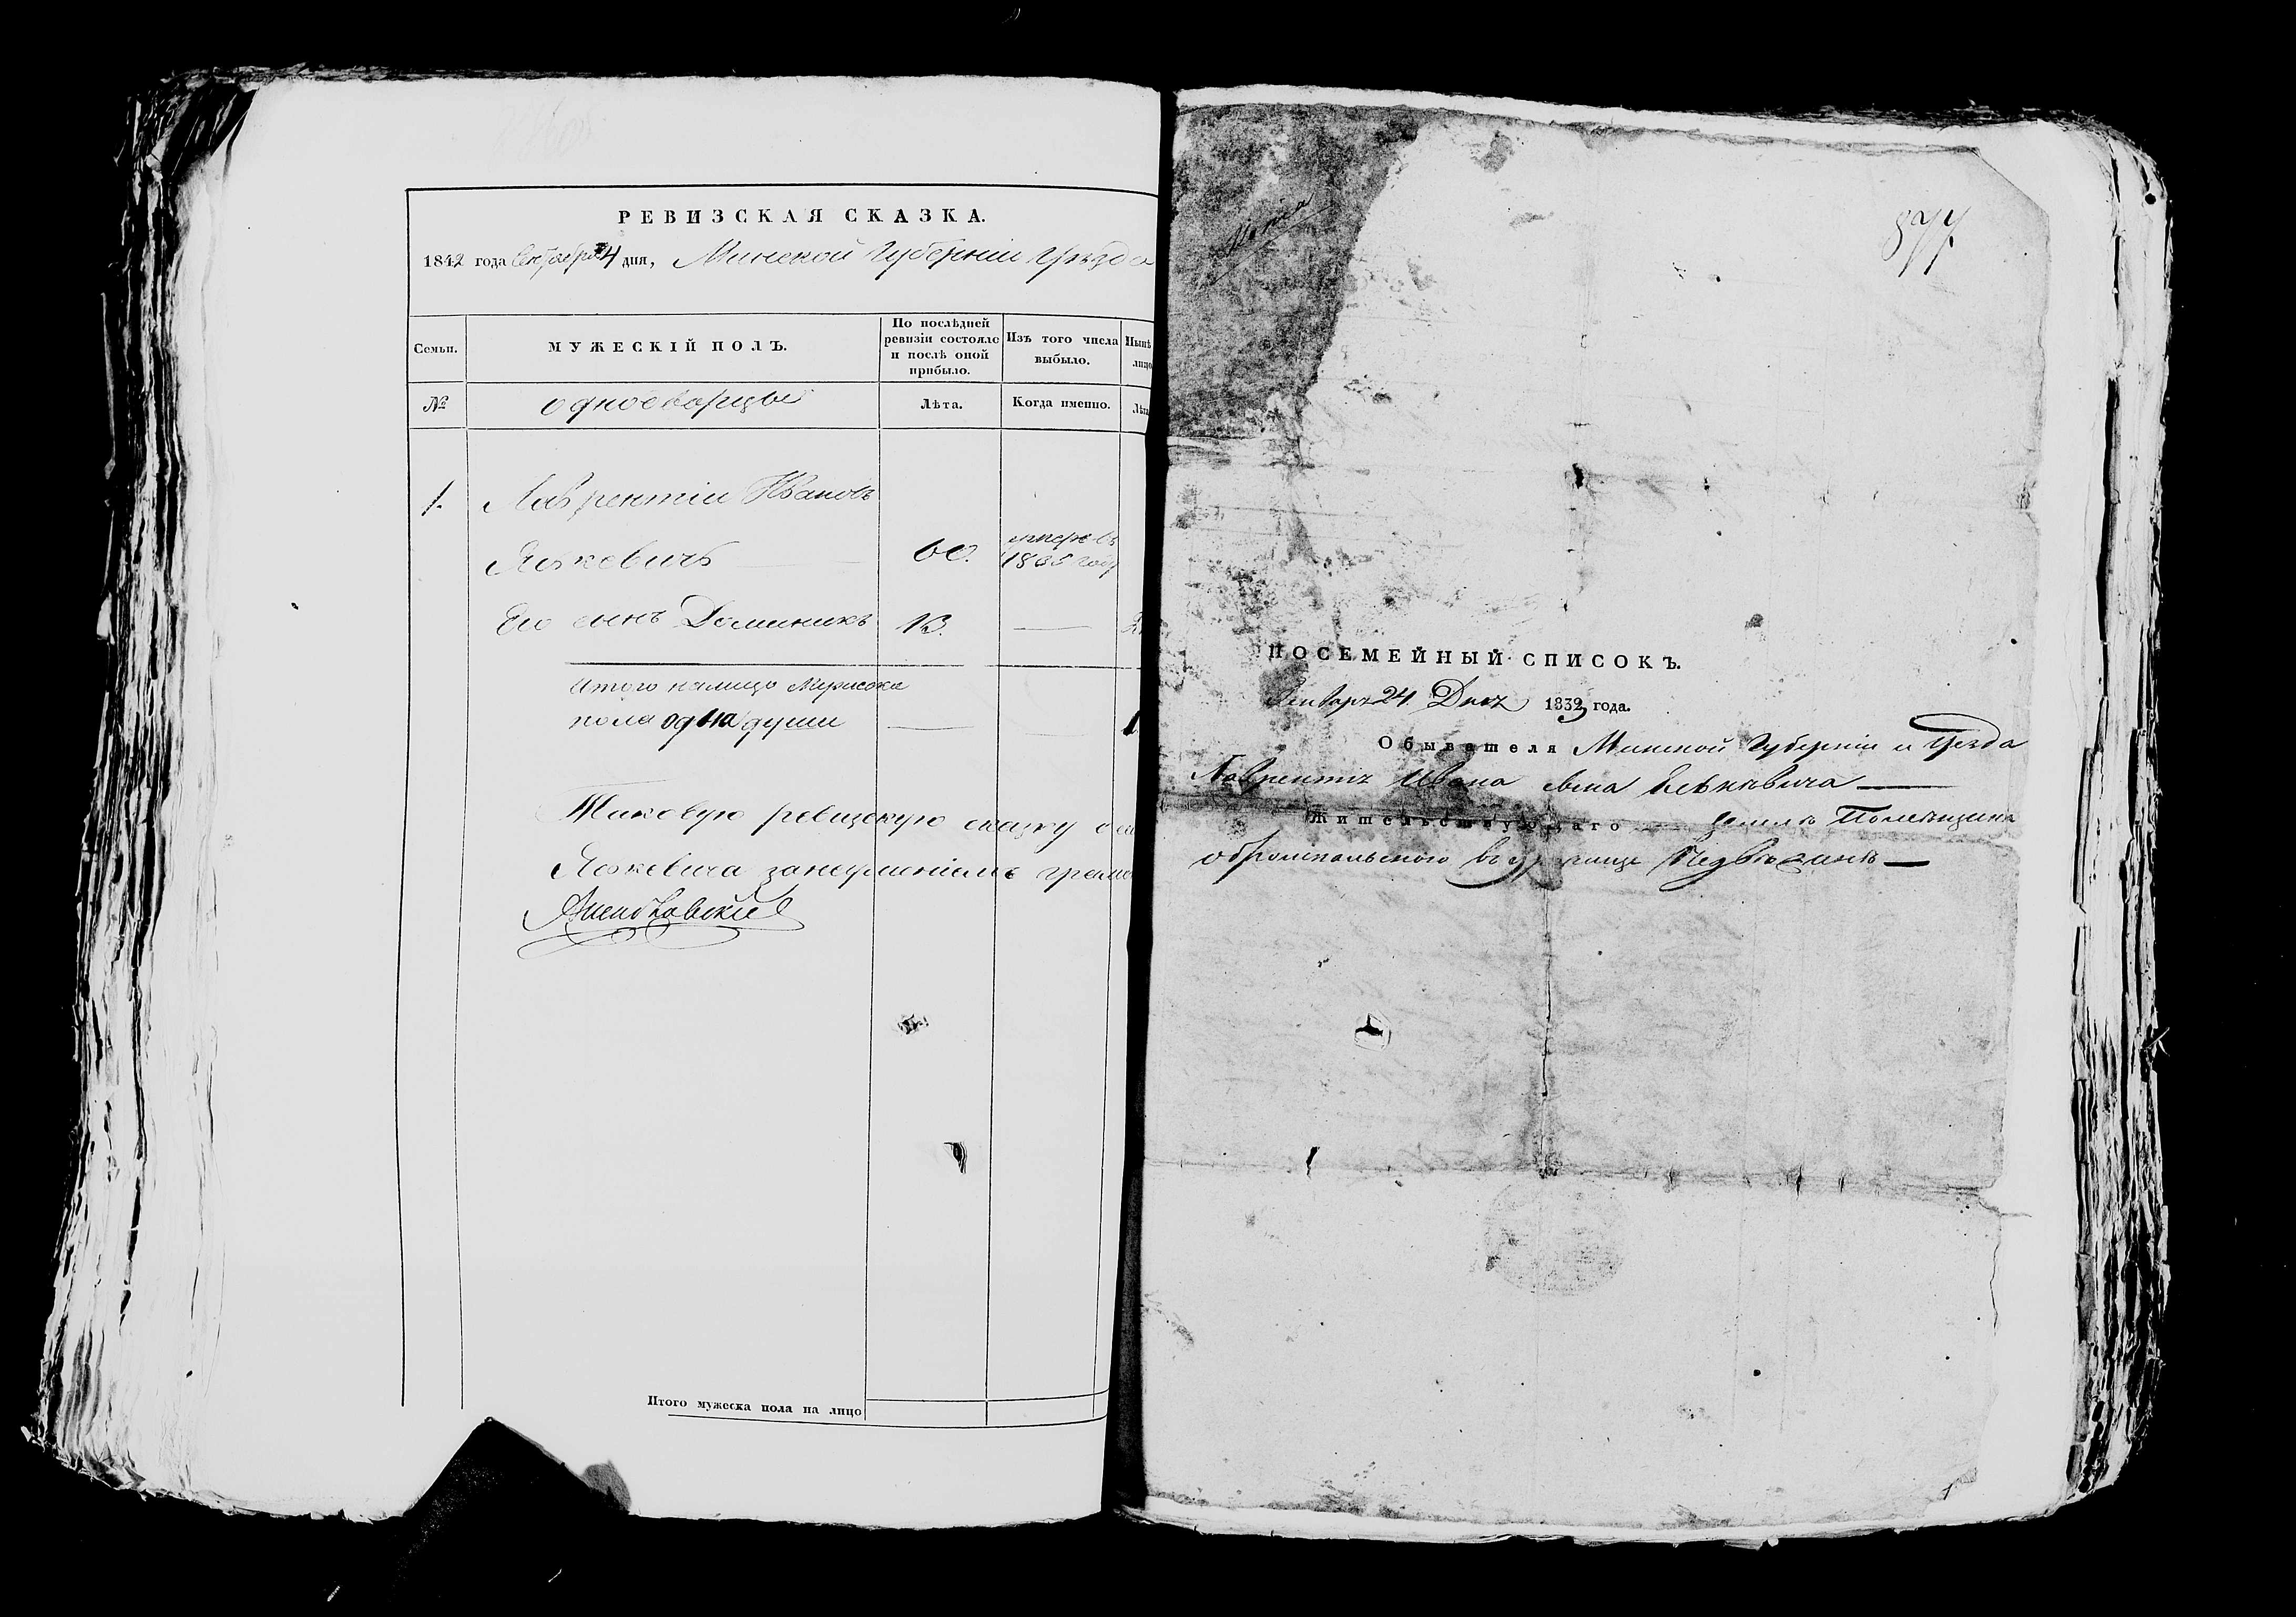 РЕВИЗСКАЯ СКАЗКА.
1842 года Октября 4 дня, Минской Губерніи Уѣзда
Семьи.
МУЖЕСКІЙ ПОЛЪ.
По послѣдней ревизіи состояло и послѣ оной прибыло.
Изъ того числа выбыло.
Нынѣ
лицо
№
однодворцы
Лѣта.
Когда именно.
Лѣта
1.
Лаврентіи Ивановъ
Яськевичъ
60.
умеръ въ
1835 году
Его сынъ Доминикъ
13.
Итого налицо Мужеска
пола одна души
1
Таковую ревизскую сказку
Яськевича занеумѣніемъ
Итого мужеска пола на лицо
Копія
877
ПОСЕМЕЙНЫЙ СПИСОКЪ.
Генваря 24 Дня 1832 года.
Обывателя Минской Губерніи и Уезда
Лаврентія Ивана сына
Жительствующаго Помѣщика